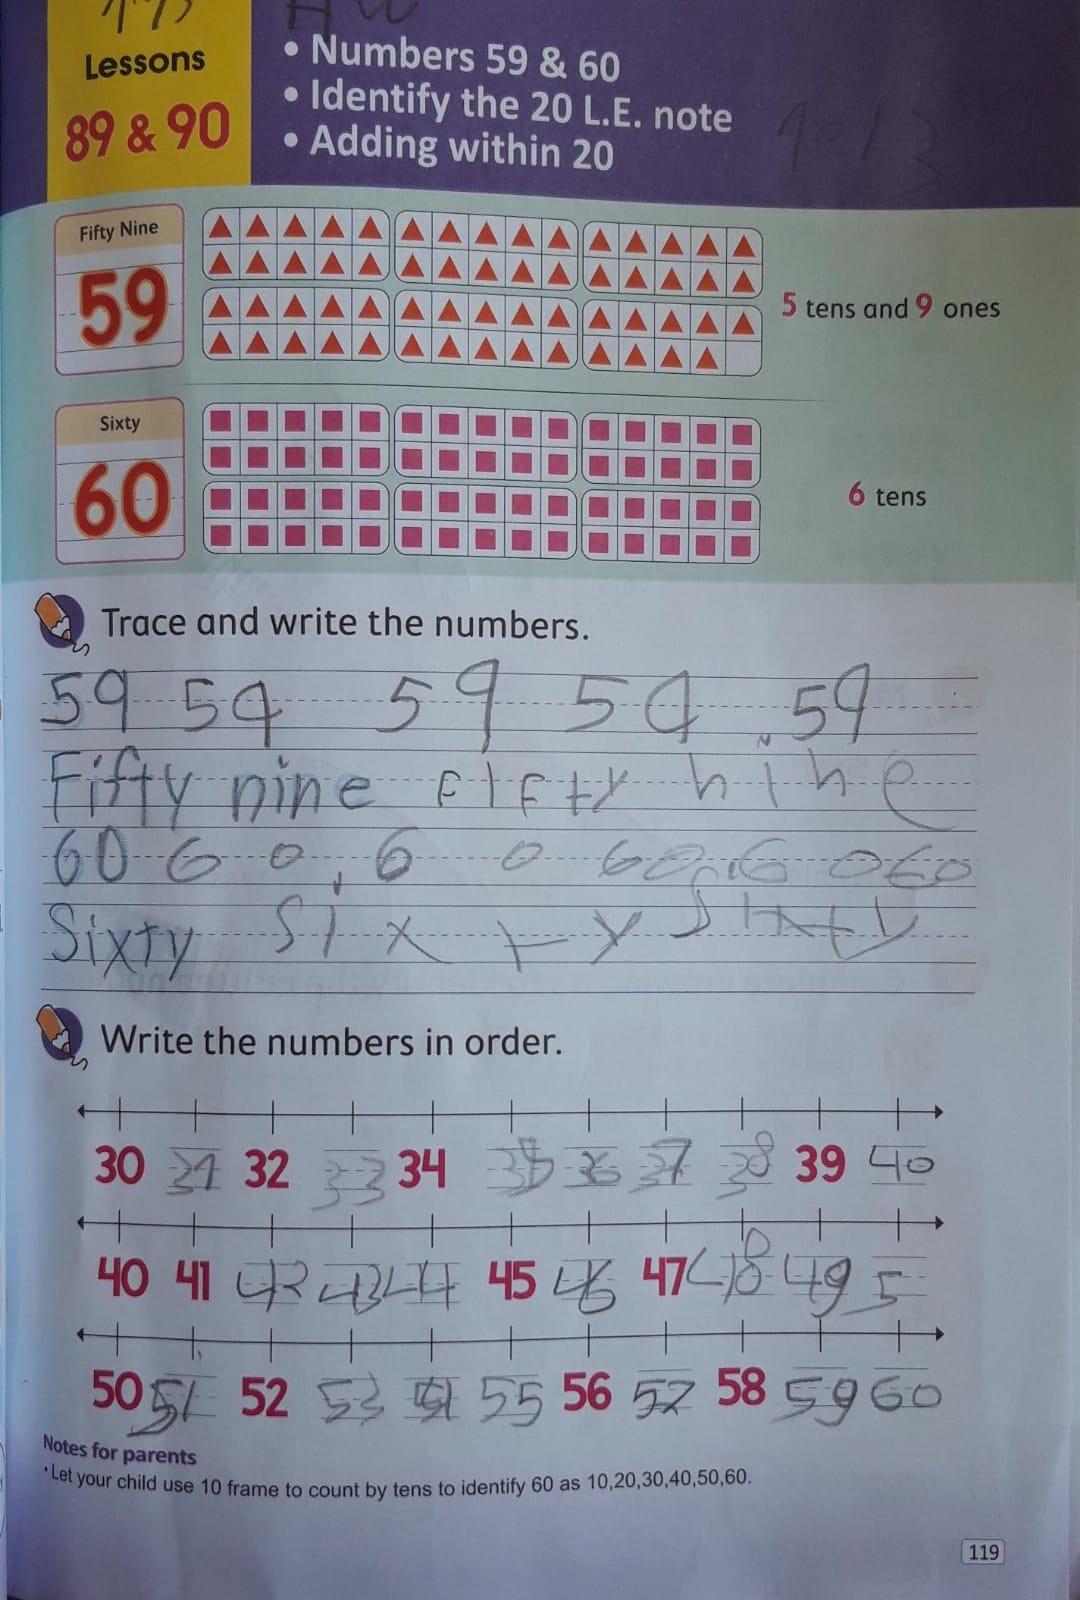 HW
Lessons
89 & 90
• Numbers 59 & 60
• Identify the 20 L.E. note
• Adding within 20
Fifty Nine
59
5 tens and 9 ones
Sixty
60
6 tens
Trace and write the numbers.
59 59 59 59 59
Fifty nine Fifty nine
60 60 60 60 60 60
Sixty Sixty Sixty
Write the numbers in order.
30 31 32 33 34 35 36 37 38 39 40
40 41 42 43 44 45 46 47 48 49 5
50 51 52 53 54 55 56 57 58 59 60
Notes for parents
• Let your child use 10 frame to count by tens to identify 60 as 10,20,30,40,50,60.
119